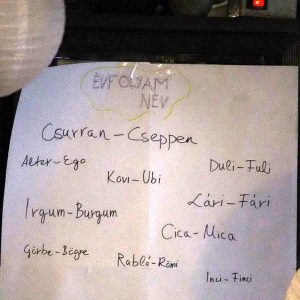 ÉVFOLYAM
NÉV
Csurran-Cseppen
Alter-Ego
Duli-Fuli
Kovi-Ubi
Lári-Fári
Irgum-Burgum
Cica-Mica
Görbe-Bögre
Rabló-Römi
Inci-Finci